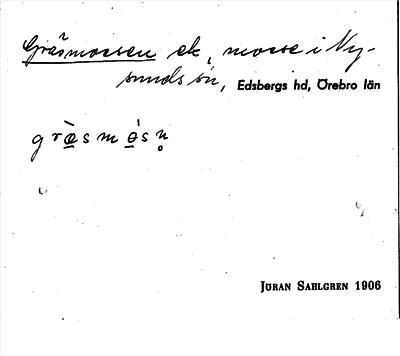 Gräsmossen ek, mosse i Ny-
sunds sn, Edsbergs hd, Örebro län
græ̀smósn̥
JÖRAN SAHLGREN 1906